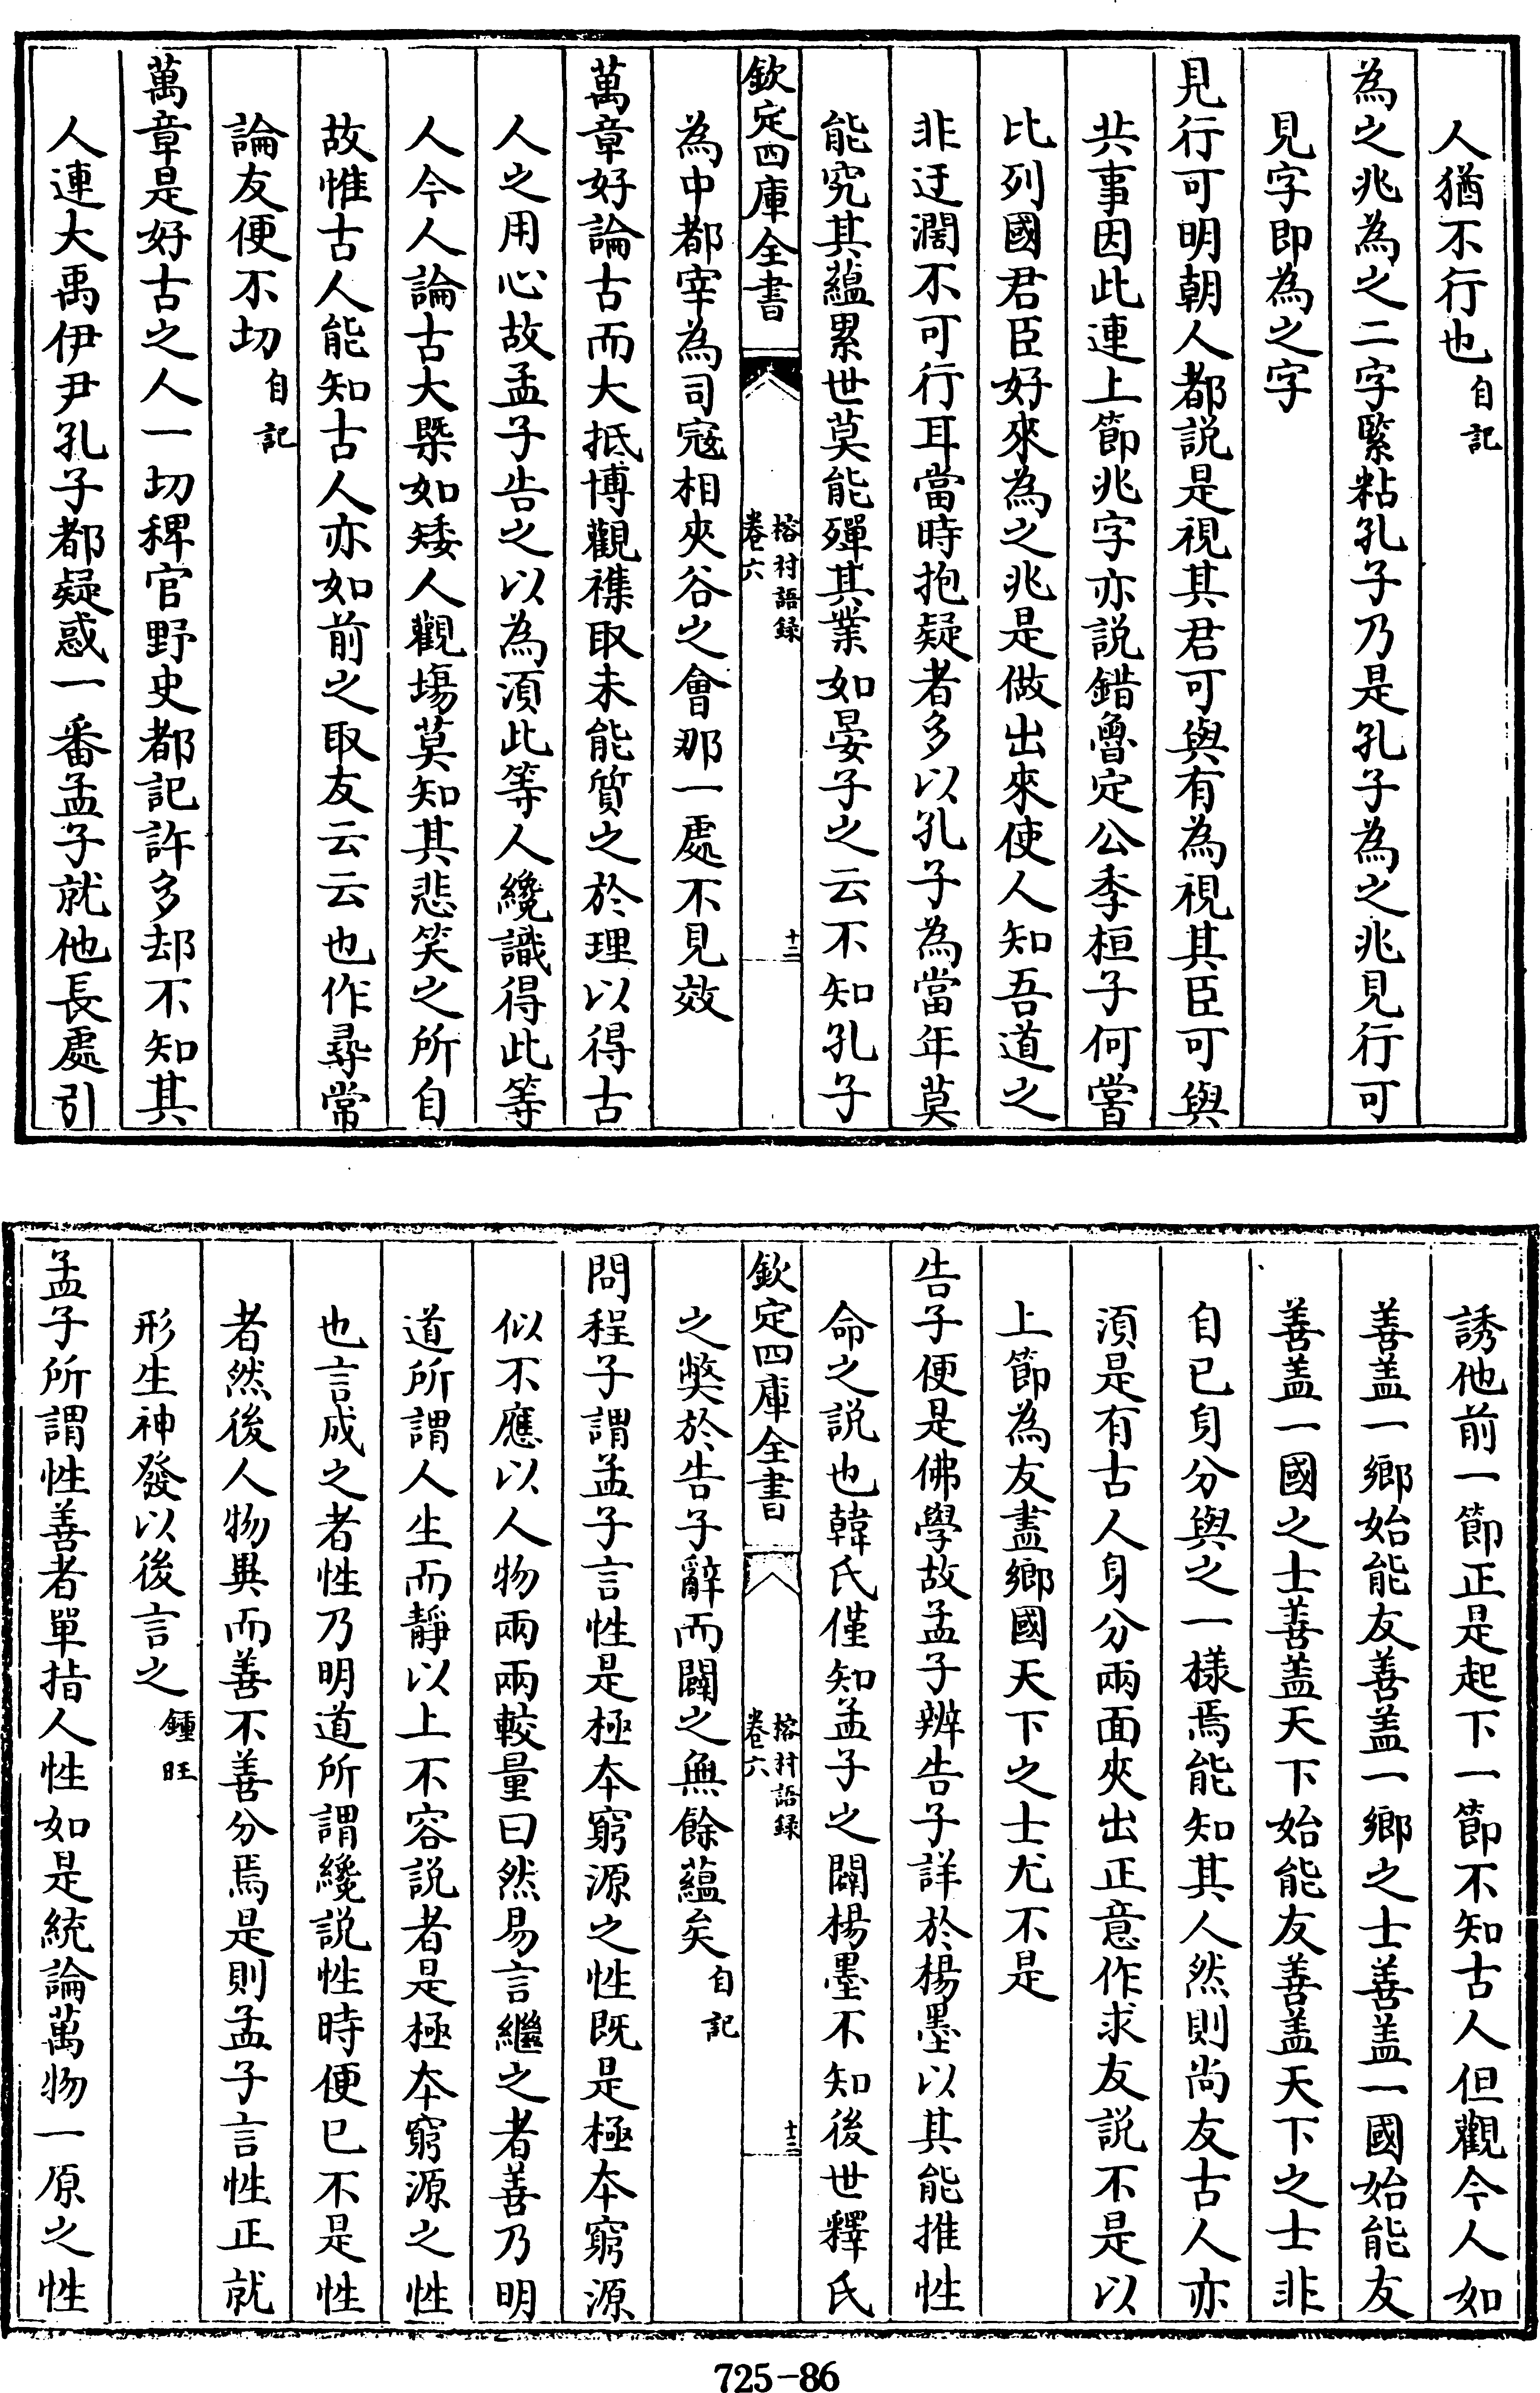 人猶不行也自記
為之兆為之二字緊粘孔子乃是孔子為之兆見行可
見字即為之字
見行可明朝人都説是視其君可與有為視其臣可與
共事因此連上節兆字亦説錯魯定公季桓子何嘗
比列國君臣好來為之兆是做出來使人知吾道之
非迂濶不可行耳當時抱疑者多以孔子為當年莫
能究其蘊累世莫能殫其業如晏子之云不知孔子
欽定四庫全書
榕村語録
卷六
十二
為中都宰為司寇相夾谷之會那一處不見效
萬章好論古而大抵博觀襍取未能質之於理以得古
人之用心故孟子告之以為須此等人纔識得此等
人今人論古大槩如矮人觀塲莫知其悲笑之所自
故惟古人能知古人亦如前之取友云云也作尋常
論友便不切自記
萬章是好古之人一切稗官野史都記許多却不知其
人連大禹伊尹孔子都疑惑一番孟子就他長處引
誘他前一節正是起下一節不知古人但觀今人如
善盖一鄉始能友善盖一鄉之士善盖一國始能友
善盖一國之士善盖天下始能友善盖天下之士非
自已身分與之一樣焉能知其人然則尚友古人亦
須是有古人身分兩面夾出正意作求友説不是以
上節為友盡鄉國天下之士尤不是
告子便是佛學故孟子辨告子詳於楊墨以其能推性
命之説也韓氏僅知孟子之闢楊墨不知後世釋氏
欽定四庫全書
榕村語録
卷六
十三
之獘於告子辭而闢之無餘蘊矣自記
問程子謂孟子言性是極本窮源之性既是極本窮源
似不應以人物兩兩較量曰然易言繼之者善乃明
道所謂人生而靜以上不容説者是極本窮源之性
也言成之者性乃明道所謂纔説性時便已不是性
者然後人物異而善不善分焉是則孟子言性正就
形生神發以後言之鍾旺
孟子所謂性善者單指人性如是統論萬物一原之性
725-86